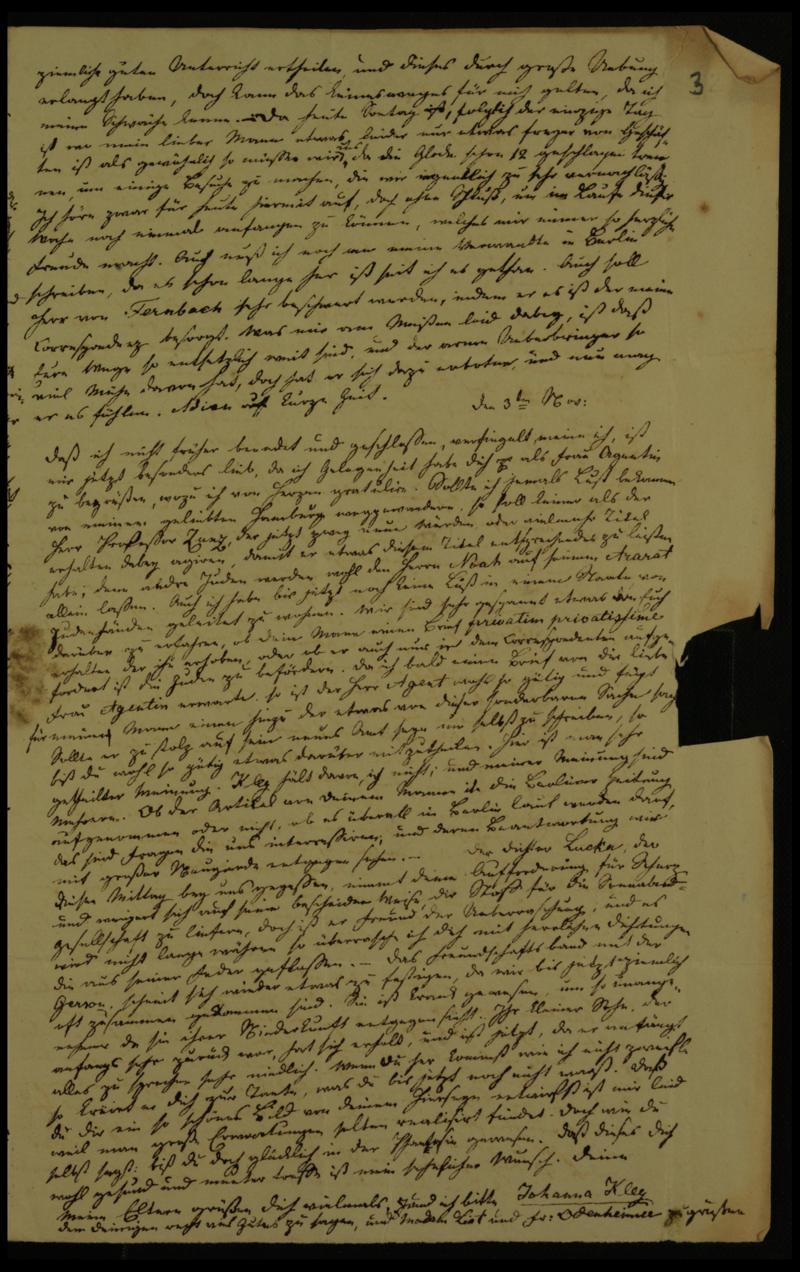 3
ziemlich guten Unterricht ertheilen, und dieses durch große Uebung
erlangt haben, doch kann das keineswegs für mich gelten, da ich
meine Schwäche kenne. – Da heute Sontag ist, folglich der einzige Tag
ist wo mein lieber Mann etwas, leider nur etwas freyer von Geschäf-
ten ist als gewöhnlich so müssen wir, da die Glocke schon 12 geschlagen
nen, um einige Besuche zu machen, die wir eigentlich zu sehr vernachläss
Ich höre zwar für heute hiermit auf, doch ohne Schluß, um im Laufe dieser
Woche noch einmal anfangen zu können, welches mir immer so herzliche
Freude macht. Auch muß ich noch an meine Verwandte in Berlin
schreiben, da es schon lange her ist seit ich es gethan. Auch soll
Herr von Fernbach sehr beschwert werden, indem er es ist der meine
Correspondenz besorgt. Was mir am Meisten leid dabey, ist daß
Eure Wege so entsetzlich weit sind, und der arme Ueberbringer so
viel Mühe davon hat, doch hat er sich dazu erboten, und nun mag
er es fühlen. Adieu auf kurze Zeit.
den 3ten Nov:
Daß ich nicht früher beendet und geschlossen, versiegelt meine ich, ist
mir jetzt besonders lieb, da ich Gelegenheit habe dich als Frau Agentin
zu begrüßen, wozu ich von Herzen gratulire. Sollte ich jemals Lust bekommen
von meinem geliebten Hamburg wegzuwandern, so soll keiner als der
Herr Professor Zunz, der jetzt zwey neue Würden oder vielmehr Titel
erhalten dabey agiren, damit er etwas diesem Titel entsprechendes zu leisten
habe; denn andre Juden werden wohl den Herrn Noah auf seinem Ararat
allein lassen. Auch ich habe bis jetzt noch keine Lust in einem Staate von
Judenhänden geleitet zu wohnen. Wir sind sehr gespannt etwas von Euch
darüber zu erfahren, ob dein Mann einen Brief privatim privatissime
erhalten der ihn erhoben, oder ob er auch nur in dem Correspondenten aufge
fordert ist die Juden zu befördern. Da ich bald einen Brief von dir liebe
Frau Agentin erwarte, so ist der Herr Agent wohl so gütig und fügt
für meinen Mann einen hinzu der etwas von dieser sonderbaren Sache sagt
Sollte er zu stolz auf sein neues Amt seyn um selbst zu schreiben, so
bist du wohl so gütig etwas darüber mitzutheilen. Hier ist man sehr
getheilter Meinung. Kley hält davon, ich nicht; und meiner Meinung sind
Mehrere. Ob der Artikel von deinem Manne in die Berliner Zeitung
aufgenommen oder nicht, ob es überall in Berlin laut werden darf,
das sind Fragen die uns interessiren, und deren Beantwortung wir
mit großer Neugierde entgegen sehen. – Der Dichter Lucka, der
diesen Mittag bey uns gegessen, nimmt deine Aufforderung für Scherz
und weigert sich auf seine bescheidene Weise, die Stoffe für die Sonnabend-
gesellschaft zu liefern, doch ist er Freund der Ueberraschung, und es
wird nicht lange währen so überrasche ich dich mit herrlichen Dichtungen
die aus seiner Feder geflossen. – Das Freundschaftsband mit der
Gerson, scheint sich wieder etwas zu festigen, da wir bis jetzt ziemlich
oft zusammen gekommen sind. Sie ist krank gewesen, um so unange-
nehmer da sie ihrer Niederkunft entgegen sieht. Ihr kleiner Sohn, der
anfangs sehr zurück war, hat sich erholt, und ist jetzt, da er anfängt
alles zu sprechen sehr niedlich. Wenn du her kommst wie ich nicht zweifle
so krönt er dich zur Tante, was du bis jetzt noch nicht warst. Daß
du dir ein so schönes Bild von deinem Hierseyn entwirfst ist mir leid
weil man große Erwartungen selten realisirt findet. Doch wie du
selbst sagst: bist du doch glücklich in der Phantasie gewesen. Daß dieses dich
wohl gesund und munter treffe ist mein sehnlicher Wunsch. Deine
Johanna Kley
Meine Eltern grüßen dich vielmals, und ich bitte
dem Deinigen recht viel Gutes zu sagen, und Madam List und Fr: Odenheimer zu grüßen